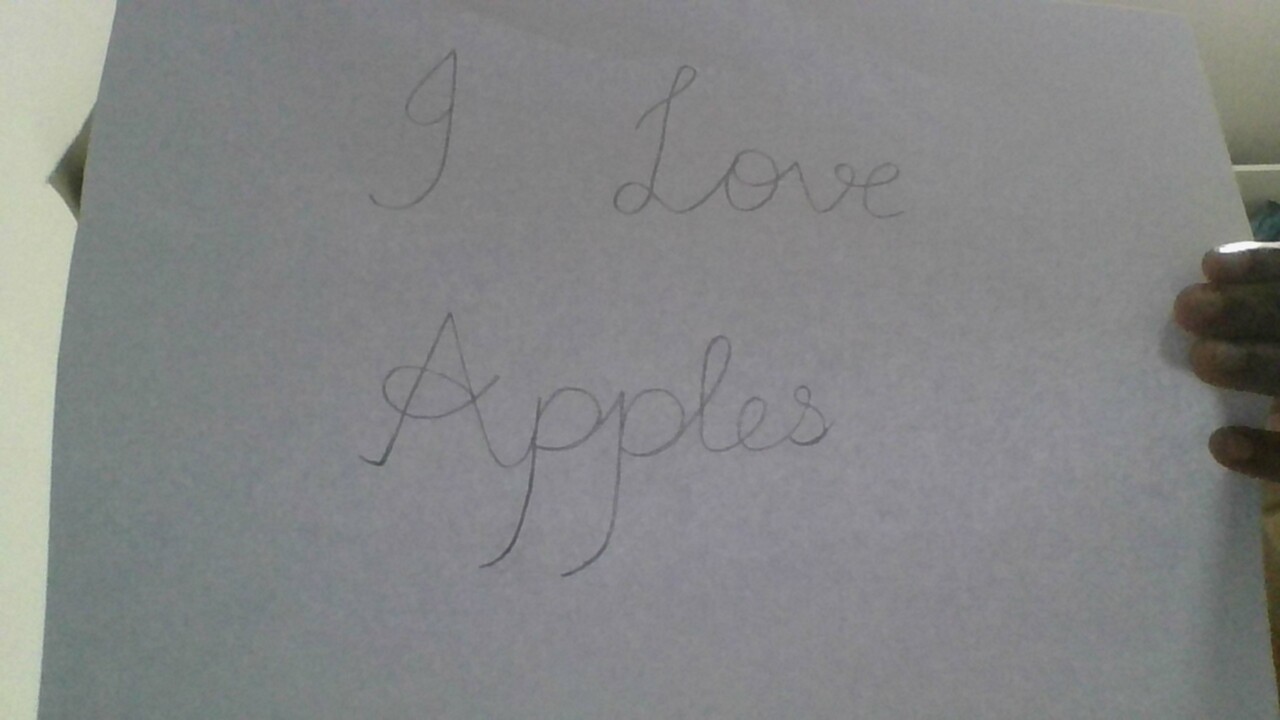 I Love
Apples